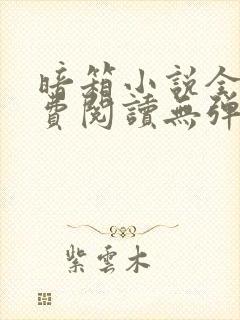 暗箱小説全
費閱讀無彈
紫雲木